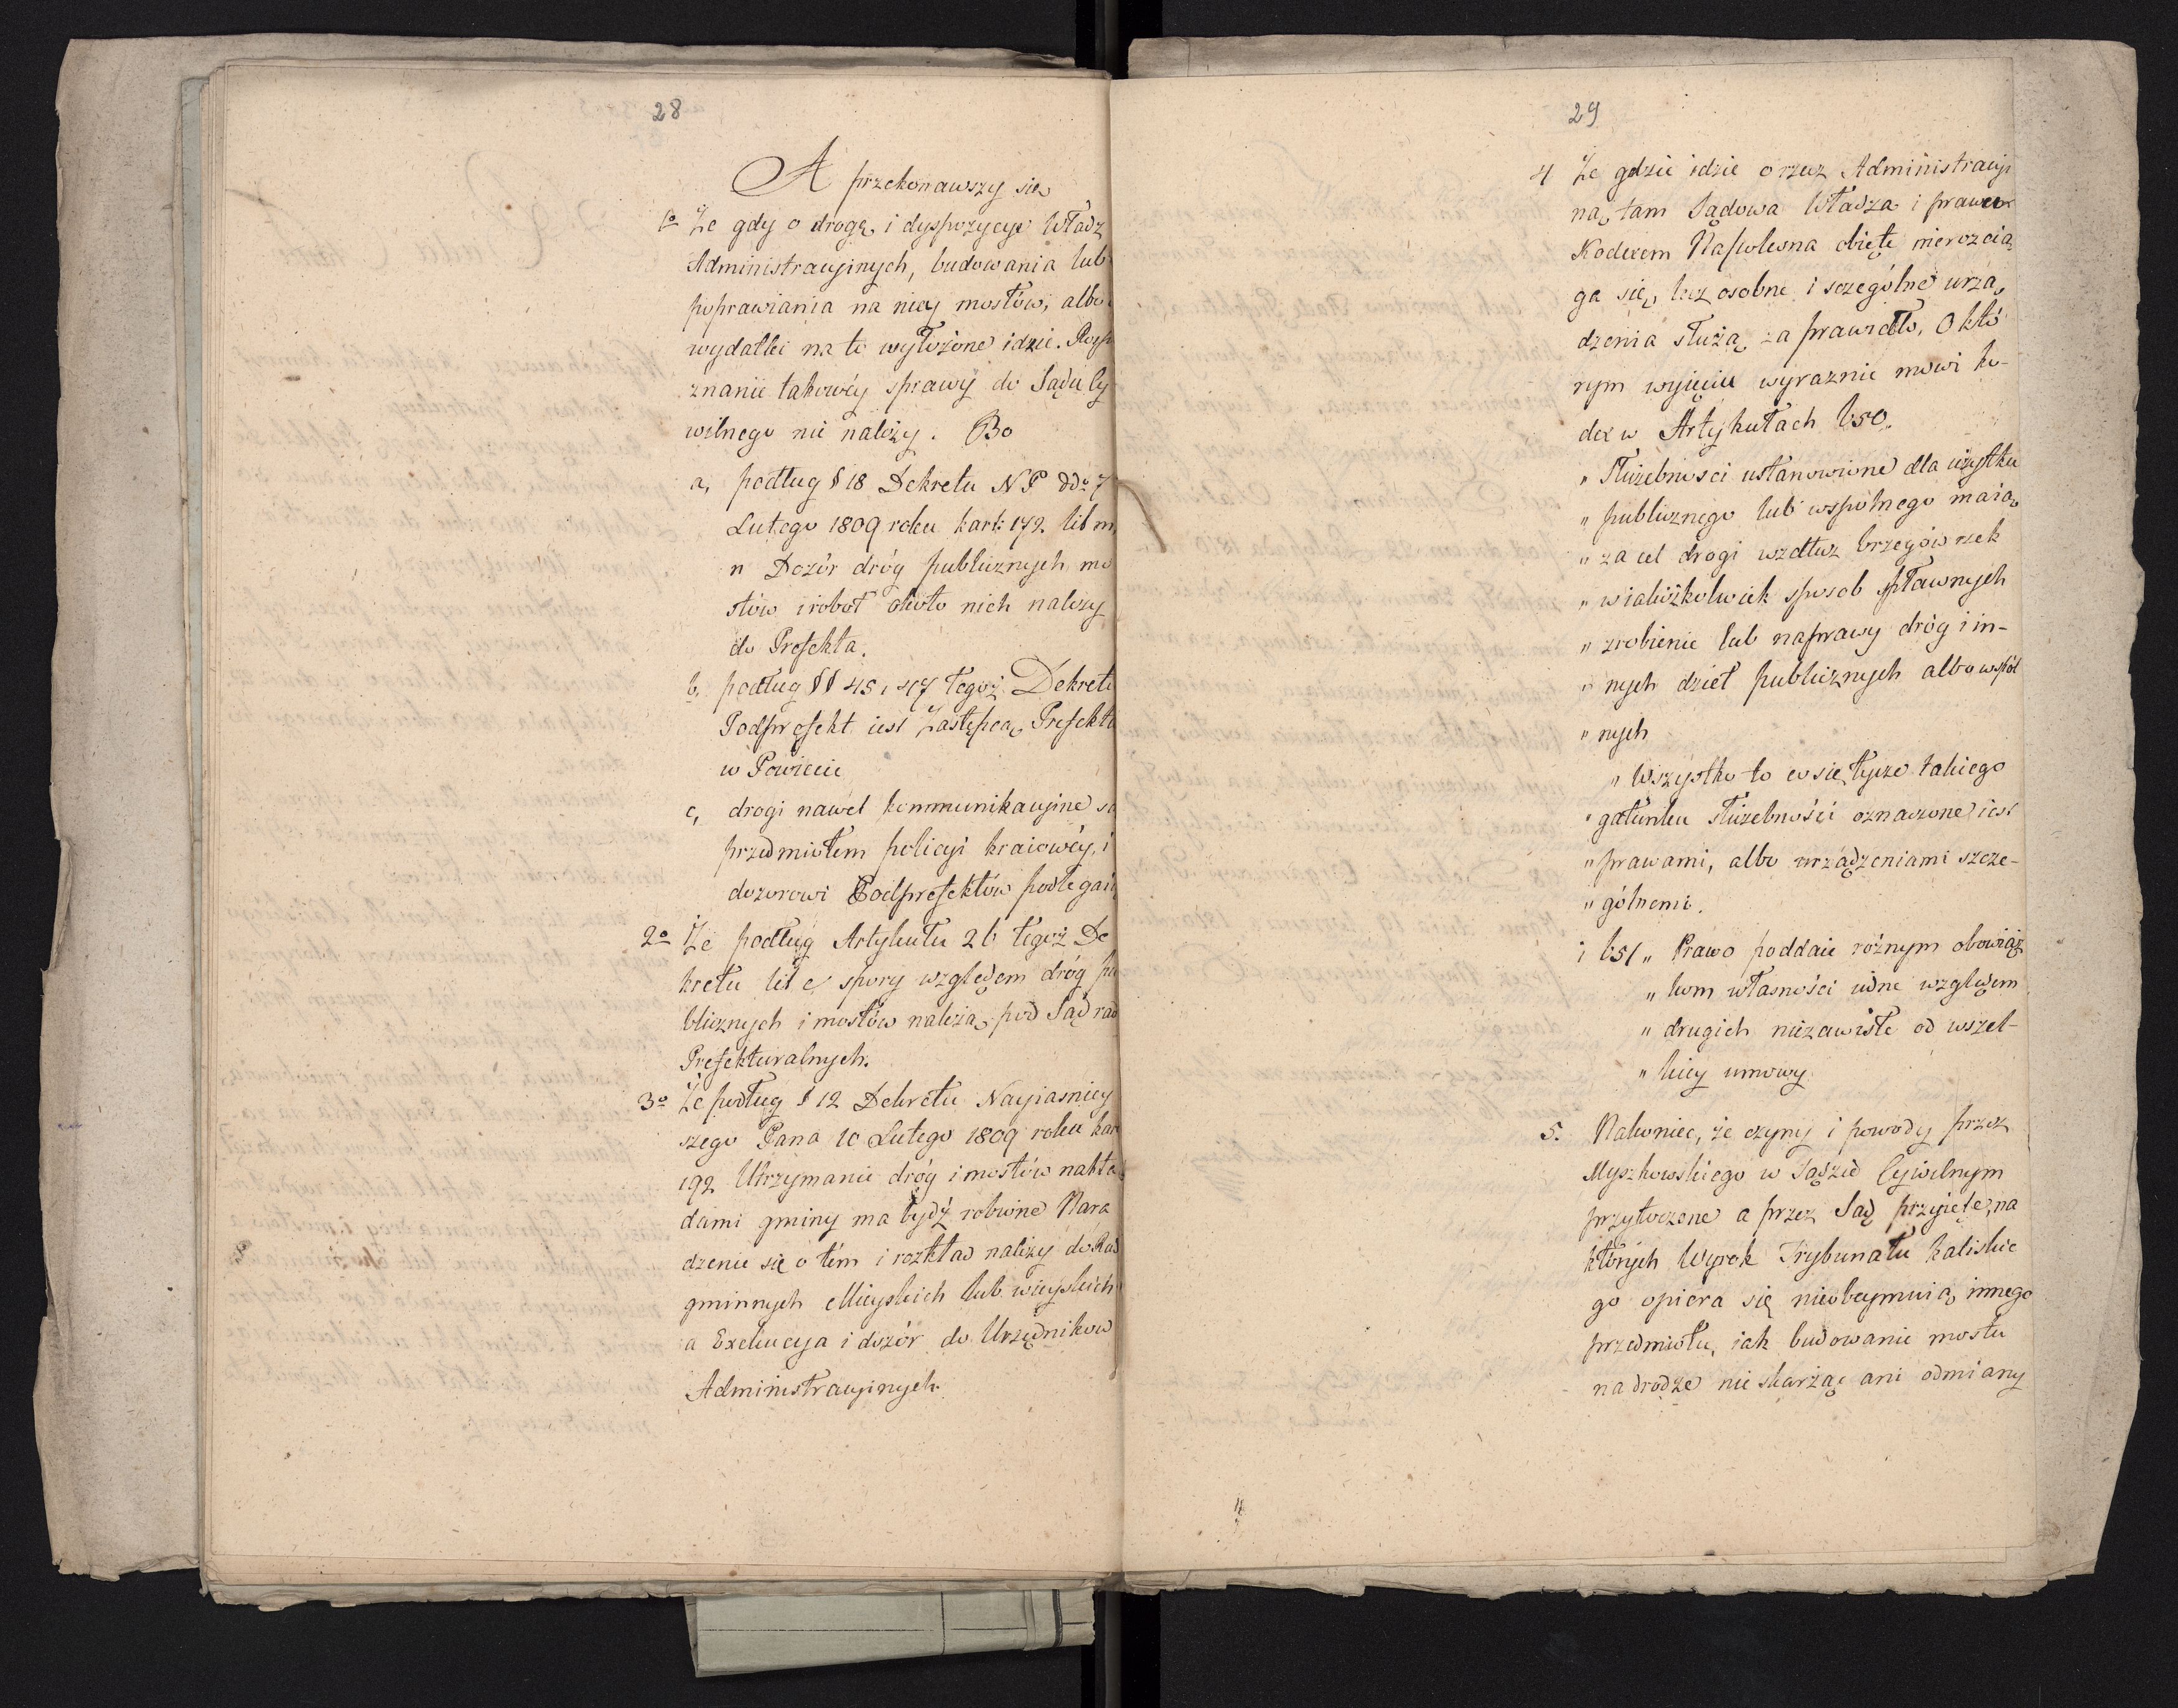 28
A przekonawszy się
1o Że gdy o drogę i dyspozycye Władz
Administracyinych, budowania lub
poprawiania na niey mostów, albo
wydatki na to wyłożone idzie. Rozpo
znanie takowéy sprawy do Sądu Cy
wilnego nie należy. Bo
a, podług § 18 Dekretu NP ddo 7
Lutego 1809 roku kart: 172 lit m,
n Dozór dróg publicznych mo
stów i robot około nich należy
do Prefekta.
b, podług §§ 45 i 47 tegoż Dekretu
Podprefekt iest Zastępcą Prefekta
w Powiecie
c, drogi nawet kommunikacyine są
przedmiotem policyi kraiowéy, i
dozorowi Podprefektów podlegaią
2o Że podług Artykułu 26 tegoż De
kretu lit e spory względem dróg pu
blicznych i mostów należą pod Sąd rad
Prefekturalnych.
3o Że podług § 12 Dekretu Nayiasniey
szego Pana 10 Lutego 1809 roku kar
192 Utrzymanie dróg i mostów nakła
dami gminy ma bydź robione Nara
dzenie się o tém i rozkład należy do Rad
gminnych Mieyskich lub wieyskich
a Exekucya i dozór do Urzędnikow
Administracyinych.
29
4 Że gdzie idzie o rzecz Administracyi
ną, tam Sądowa Władza i prawem
Kodexem Napoleona obięte nierozcią
ga się, lecz osobne i sczególne urzą
dzenia służą za prawidło, O któ
rym wyięciu wyraznie mowi Ko-
dex w Artykułach 650.
„ Służebnosci ustanowione dla użytku
„ publicznego lub wspolnego maią
„ za cel drogi wzdłuz brzegów rzek
„ w iakiżkolwiek sposob spławnych
„ zrobienie lub naprawy dróg i in-
„ nych dzieł publicznych albo wspól
„ nych
„ Wszystko to co się tycze takiego
„ gatunku służebności oznaczone iest
„ prawami, albo urządzeniami szcze-
„ gólnemi.
i 651 „ Prawo poddaie różnym obowiąz
„ kom własności iedne względem
„ drugich niezawisłe od wszel-
„ kiey umowy
5. Nakoniec, że czyny i powody przez
Myszkowskiego w Sądzie Cywilnym
przytoczone a przez Sąd przyięte, na
których Wyrok Trybunału Kaliskie
go opiera się nieobeymuią innego
przedmiotu, iak budowanie mostu
na drodze nie skarżąc ani odmiany
4